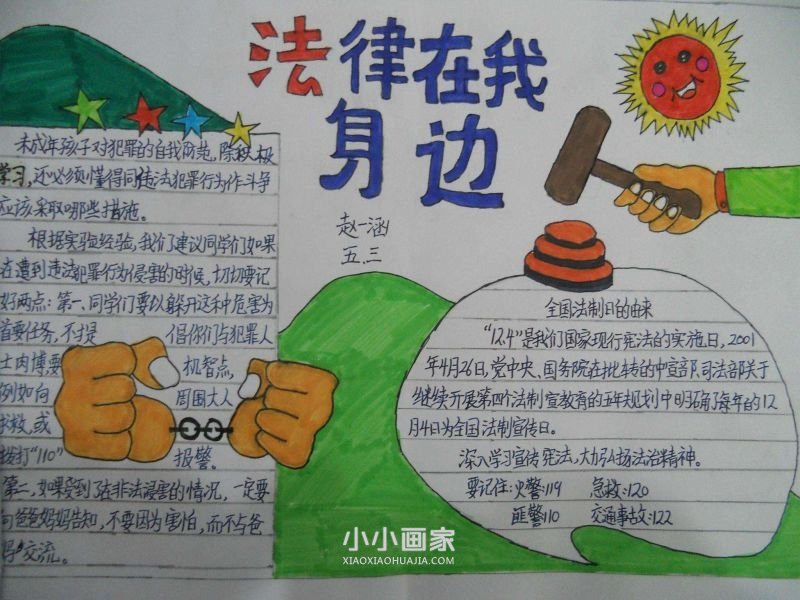 法律在我
身边
赵一涵
五.三
未成年孩子对犯罪的自我防范,除积极
学习,还必须懂得同违法犯罪行为作斗争
应该采取哪些措施。
根据实验经验,我们建议同学们如果
在遭到违法犯罪行为侵害的时候,切切要记
好两点:第一、同学们要以躲开这种危害为
首要任务,不提 倡你们与犯罪人
士肉博要 机智点,
例如向 周围大人
求救,或
拨打"110" 报警。
第二、如果受到了在非法浸害的情况,一定要
向爸爸妈妈告知,不要因为害怕,而不与爸
妈交流。
全国法制日的由来
"12.4"是我们国家现行宪法的实施日,2001
年4月26日,党中央、国务院在批转的中宣部、司法部关于
继续开展第四个法制宣教育的五年规划中明确了每年的12
月4日为全国法制宣传日。
深入学习宣传宪法,大力弘扬法治精神。
要记住:火警:119 急救:120
匪警110 交通事故:122
小小画家
XIAOXIAOHUAJIA.COM